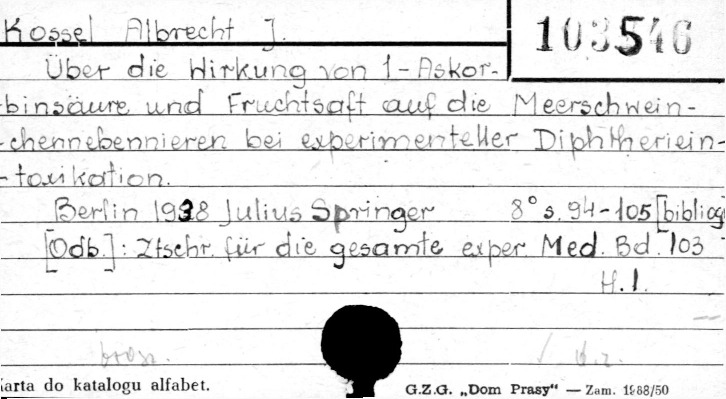 Kossel Albrecht J.
103546
Über die Wirkung von l-Askor-
binsäure und Fruchtsaft auf die Meerschwein-
-chennebennieren bei experimenteller Diphtheriein-
-toxikation.
Berlin 1938 Julius Springer 8° s. 94-105 [bibliog
[Odb.]: Ztschr. für die gesamte exper. Med. Bd. 103
H. 1.
brosz.
arta do katalogu alfabet. G.Z.G. „Dom Prasy“ — Zam. 1988/50